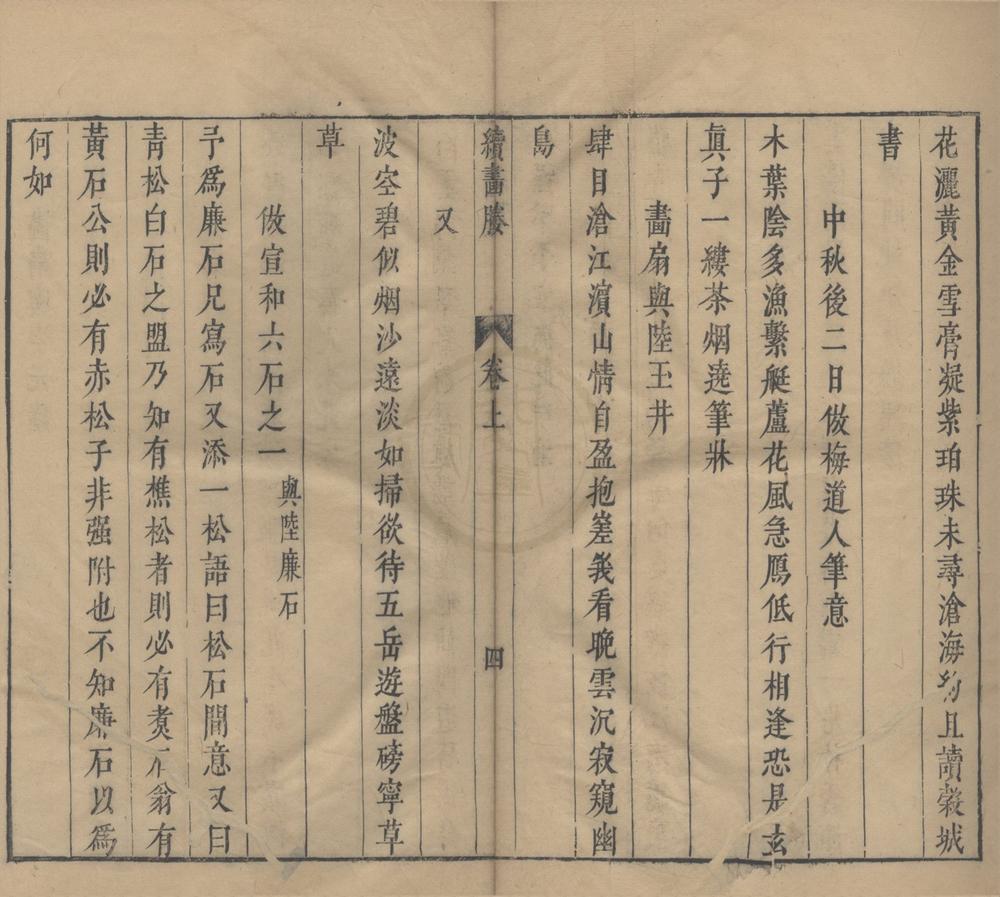 花灑黃金雪膏凝紫珀珠未尋滄海約且讀穀城
書
中秋後二日倣梅道人筆意
木葉陰多漁繫艇蘆花風急鴈低行相逢恐是玄
眞子一縷茶烟遶筆牀
畵扇與陸玉井
肆目滄江濵山情自盈抱嵳峩看晩雲沉寂窺幽
鳥
續畵媵 卷上 四
又
波空碧似烟沙遠淡如掃欲待五岳遊盤磅寧草
草
倣宣和六石之一 與陸廉石
予爲廉石兄寫石又添一松語曰松石間意又曰
靑松白石之盟乃知有樵松者則必有煑石翁有
黃石公則必有赤松子非强附也不知廉石以爲
何如